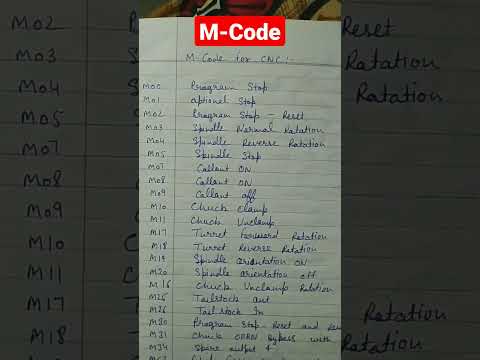 M-Code
M-Code for CNC:
M00 Program Stop
M01 optional Stop
M02 Program Stop – Reset
M03 Spindle Normal Ratation
M04 Spindle Reverse Ratation
M05 Spindle Stop
M07 Collant ON
M08 Collant ON
M09 Collant off
M10 Chuck Clamp
M11 Chuck Unclamp
M17 Turret forward Ratation
M18 Turret Reverse Ratation
M19 Spindle orientation ON
M20 Spindle orientation off
M16 Chuck Unclamp Ratation
M25 Tailstock out
M26 Tailstock In
M30 Program Stop – Reset and
M31 Chuck Bypass with
M34 Spare output 4
M02
M03
M04
M05
M07
M08
M09
M10
M11
M17
M18
Reset
Ratation
Ratation
Ratation
Ratation